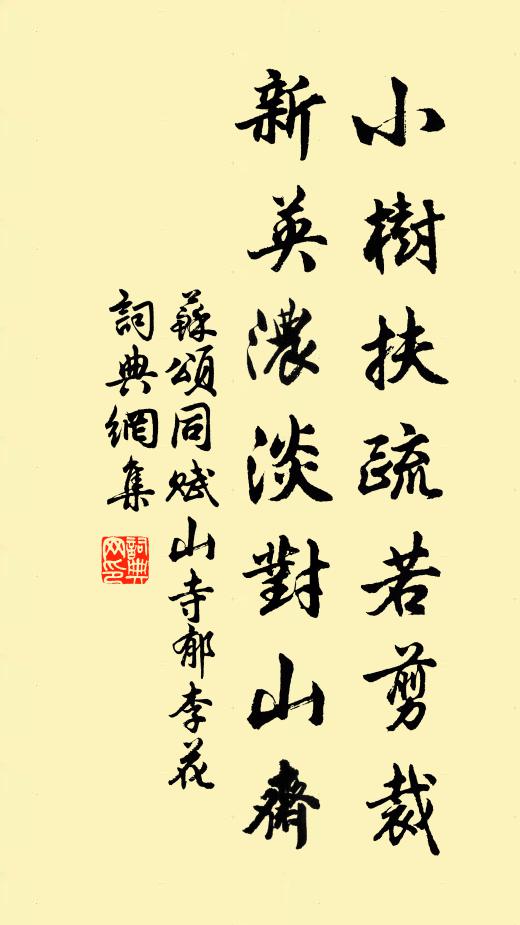 小樹扶疏若剪裁
新英濃淡對山齋
蘇頌同賦山寺郁李花
詞典網集
詞典網印